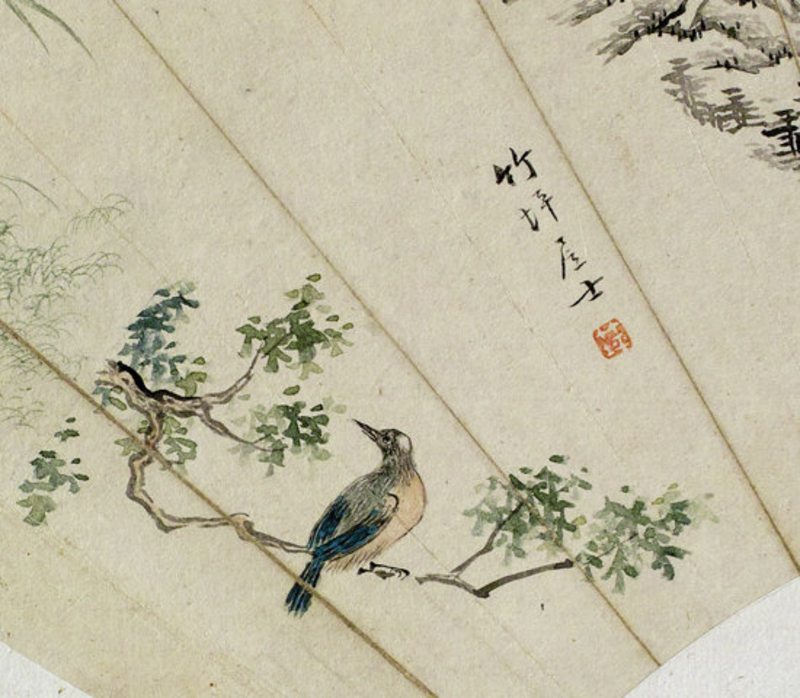 竹坪居士